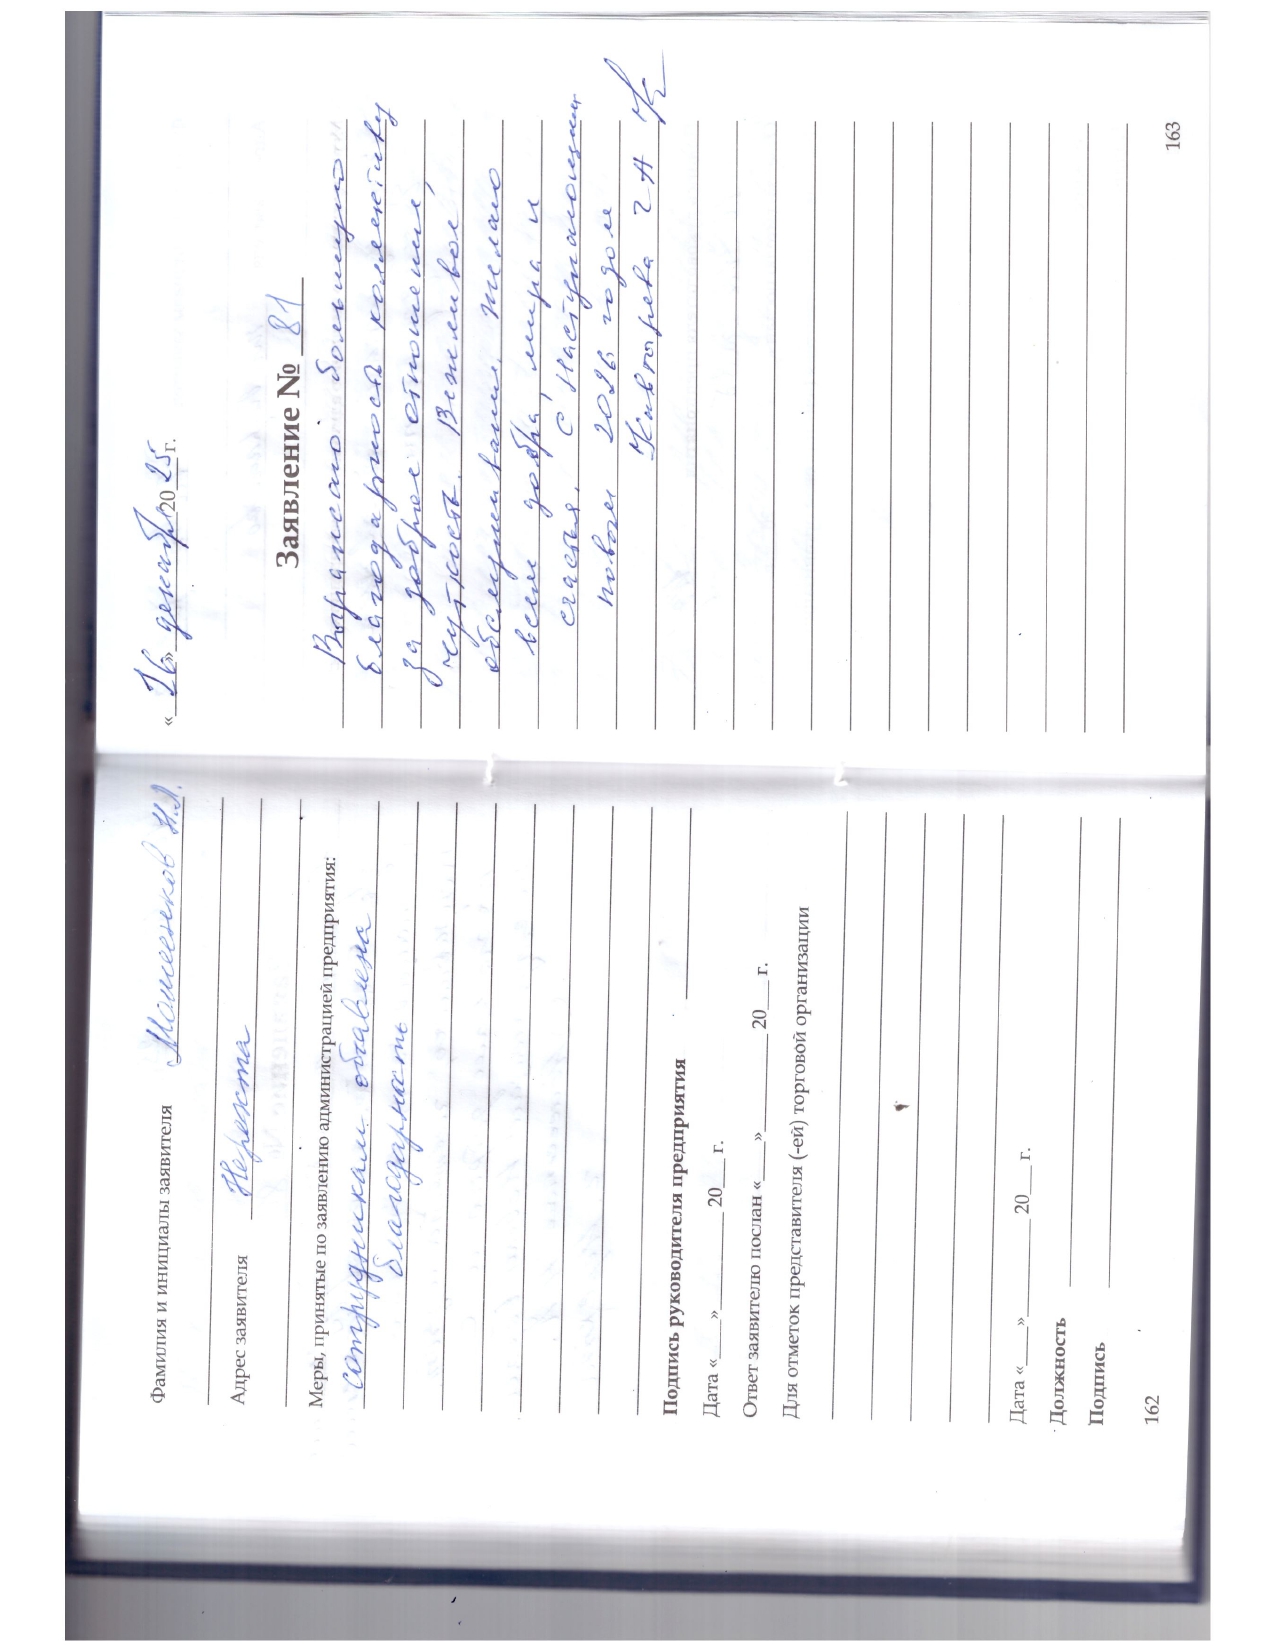 Фамилия и инициалы заявителя Мошеенков Н.Л.
Адрес заявителя Нерехта
Меры, принятые по заявлению администрацией предприятия:
сотрудникам объявлена
благодарность
Подпись руководителя предприятия
Дата «____»________20___г.
Ответ заявителю послан «___»________20___г.
Для отметок представителя (-ей) торговой организации
Дата «___»________20___г.
Должность
Подпись
162
«26» декабря 2025 г.
Заявление № 81
Выражаю большую
благодарность коллективу
за доброе отношение,
чуткость. Вежливое
обслуживание. Желаю
всем добра, мира и
счастья. С Наступающим
новым 2026 годом
163